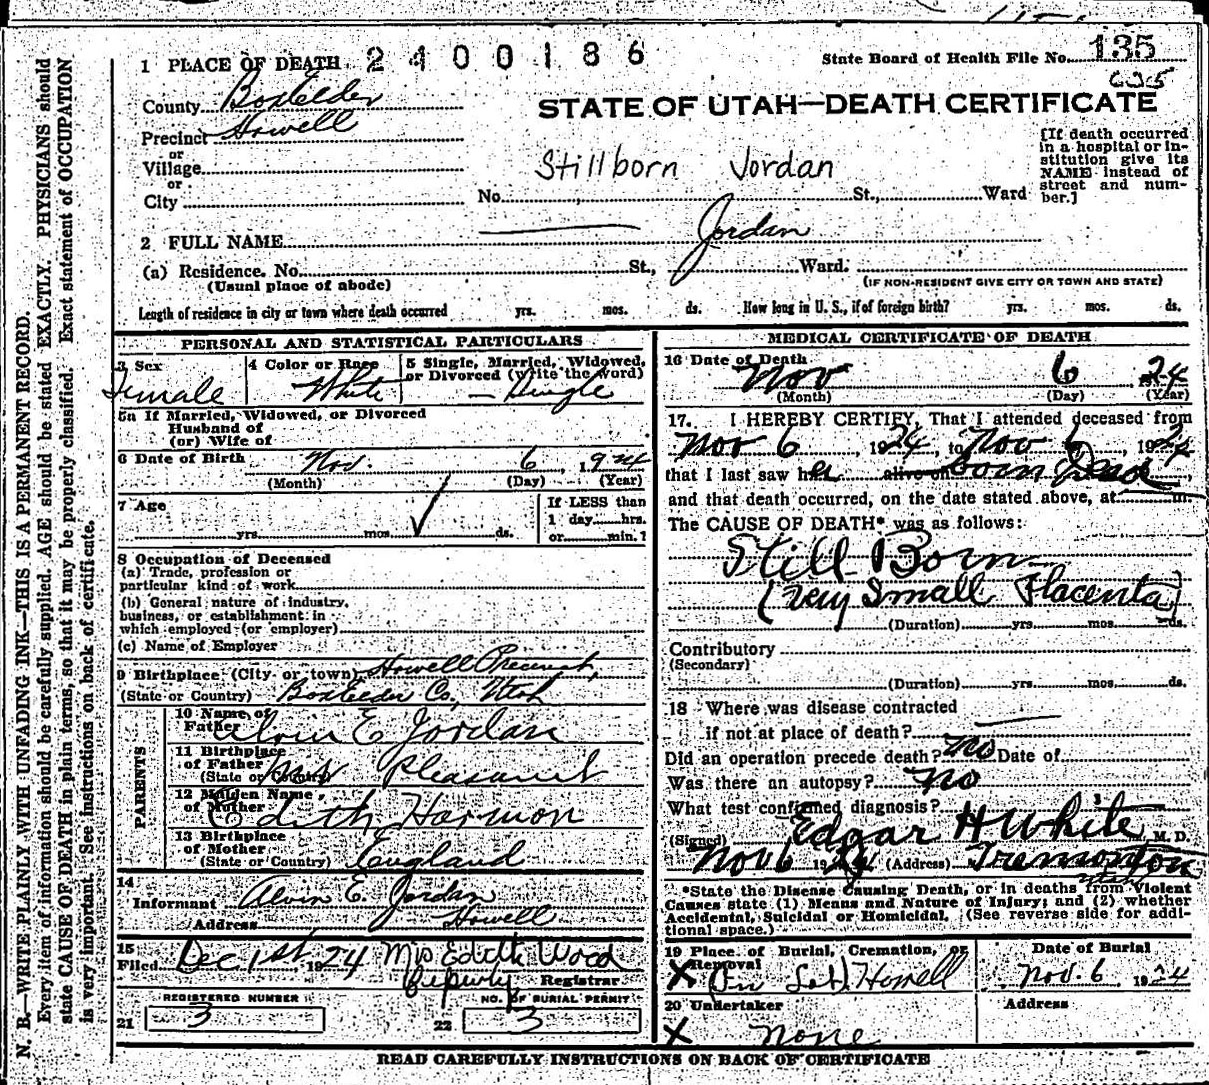 1 PLACE OF DEATH 2400186
State Board of Health File No. 135
635
County Boxelder
STATE OF UTAH—DEATH CERTIFICATE
Precinct Howell
or
Village
or
City
Stillborn Jordan
No. St., Ward
[If death occurred in a hospital or in-
stitution give its
NAME instead of
street and num-
ber.]
2 FULL NAME Jordan
(a) Residence. No. St., Ward.
(Usual place of abode)
(IF NON-RESIDENT GIVE CITY OR TOWN AND STATE)
Length of residence in city or town where death occurred yrs. mos. ds. How long in U. S., if of foreign birth? yrs. mos. ds.
PERSONAL AND STATISTICAL PARTICULARS
3 Sex
Female
4 Color or Race
White
5 Single, Married, Widowed,
or Divorced (write the word)
Single
5a If Married, Widowed, or Divorced
Husband of
(or) Wife of
6 Date of Birth Nov. 6, 1924
(Month) (Day) (Year)
7 Age
yrs. mos. ds.
If LESS than
1 day hrs.
or min.?
8 Occupation of Deceased
(a) Trade, profession or
particular kind of work
(b) General nature of industry,
business, or establishment in
which employed (or employer)
(c) Name of Employer
9 Birthplace (City or town) Howell Precinct,
(State or Country) Boxelder Co., Utah
PARENTS
10 Name of
Father Alvin E Jordan
11 Birthplace
of Father Mt Pleasant
(State or Country)
12 Maiden Name
of Mother Edith Harmon
13 Birthplace
of Mother England
(State or Country)
14
Informant Alvin E. Jordan
Address Howell
15
Filed Dec 1st, 1924 Mrs Edith Wood
Deputy Registrar
REGISTERED NUMBER
21 3
NO. OF BURIAL PERMIT
22 3
MEDICAL CERTIFICATE OF DEATH
16 Date of Death
Nov 6 24
(Month) (Day) (Year)
17. I HEREBY CERTIFY, That I attended deceased from
Nov 6 1924, to Nov 6, 1924
that I last saw her alive on born Dead
and that death occurred, on the date stated above, at m.
The CAUSE OF DEATH* was as follows:
Still Born
(Very Small Placenta)
(Duration) yrs. mos. ds.
Contributory
(Secondary)
(Duration) yrs. mos. ds.
18 Where was disease contracted
if not at place of death?
Did an operation precede death? No Date of
Was there an autopsy? No
What test confirmed diagnosis?
(Signed) Edgar H White M. D.
Nov 6 1924 (Address) Tremonton
Utah
*State the Disease Causing Death, or in deaths from Violent
Causes state (1) Means and Nature of Injury; and (2) whether
Accidental, Suicidal or Homicidal. (See reverse side for addi-
tional space.)
19 Place of Burial, Cremation, or
Removal
X On Lot Howell
Date of Burial
Nov. 6 1924
20 Undertaker
X None
Address
READ CAREFULLY INSTRUCTIONS ON BACK OF CERTIFICATE
N. B.—WRITE PLAINLY WITH UNFADING INK—THIS IS A PERMANENT RECORD.
Every item of information should be carefully supplied. AGE should be stated EXACTLY. PHYSICIANS should
state CAUSE OF DEATH in plain terms, so that it may be properly classified. Exact statement of OCCUPATION
is very important. See instructions on back of certificate.